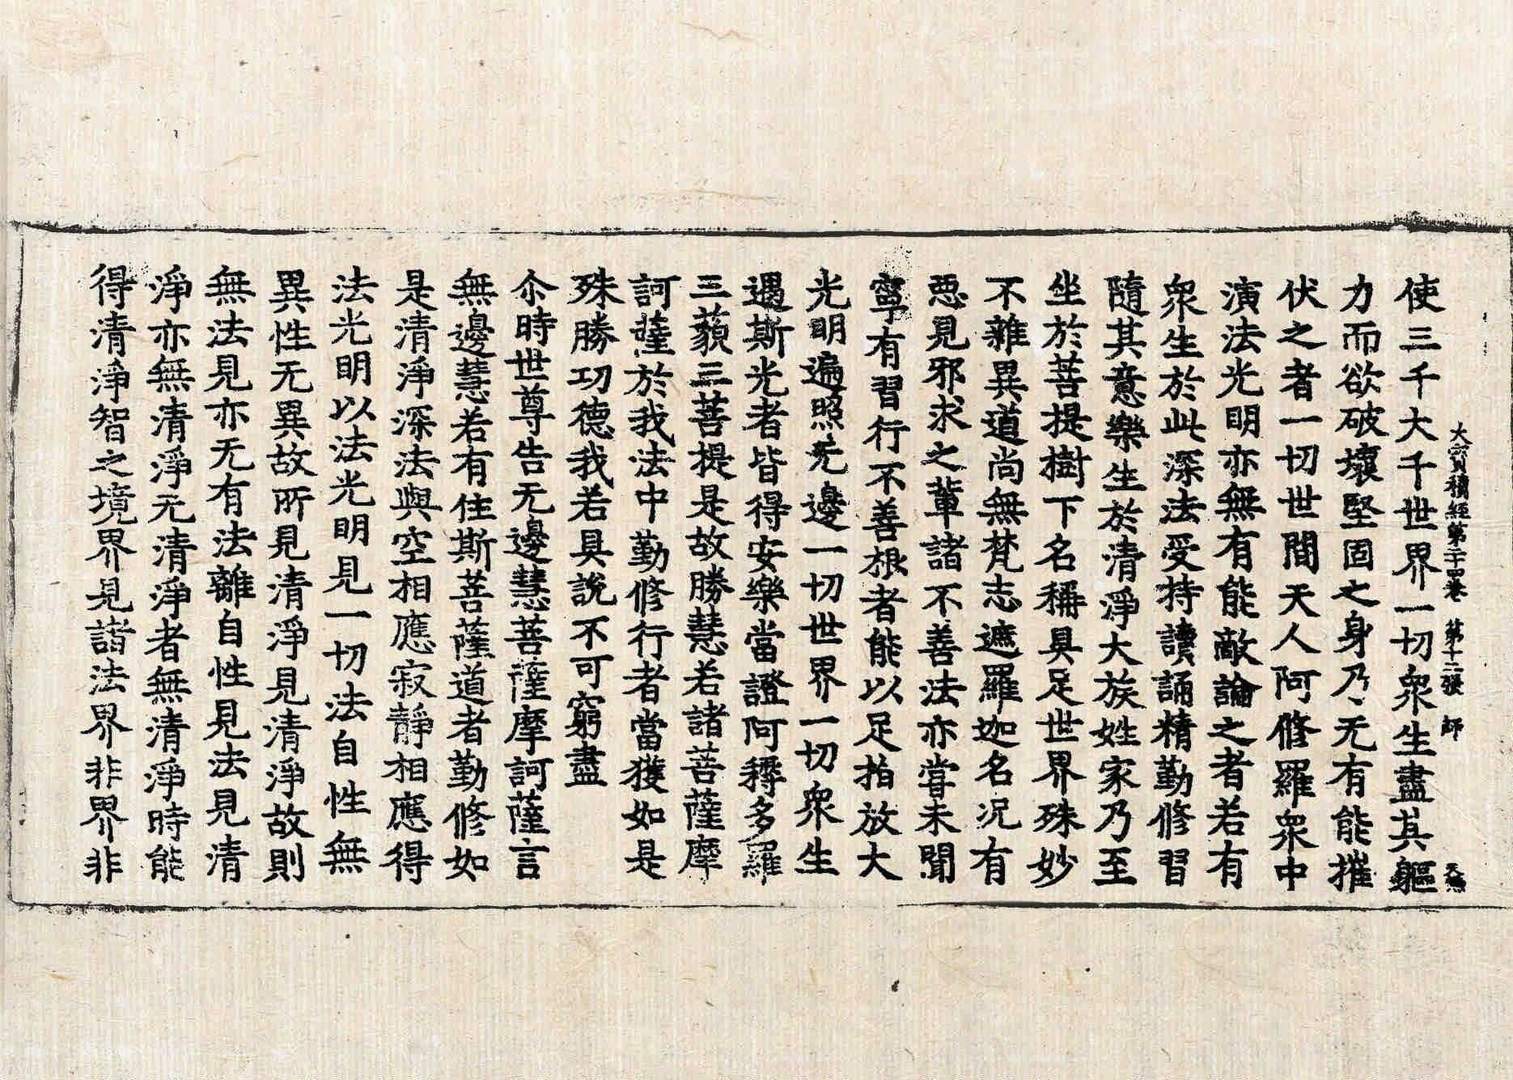 大寶積經第二十四卷 第十二張 師
使三千大千世界一切衆生盡其軀
力而欲破壞堅固之身乃无有能摧
伏之者一切世間天人阿修羅衆中
演法光明亦無有能敵論之者若有
衆生於此深法受持讀誦精勤修習
隨其意樂生於清淨大族姓家乃至
坐於菩提樹下名稱具足世界殊妙
不雜異道尚無梵志遮羅迦名況有
惡見邪求之輩諸不善法亦甞未聞
寧有習行不善根者能以足拍放大
光明遍照无邊一切世界一切衆生
遇斯光者皆得安樂當證阿耨多羅
三藐三菩提是故勝慧若諸菩薩摩
訶薩於我法中勤修行者當獲如是
殊勝功德我若具說不可窮盡
尒時世尊告无邊慧菩薩摩訶薩言
無邊慧若有住斯菩薩道者勤修如
是清淨深法與空相應寂靜相應得
法光明以法光明見一切法自性無
異性无異故所見清淨見清淨故則
無法見亦无有法離自性見法見清
淨亦無清淨无清淨者無清淨時能
得清淨智之境界見諸法界非界非